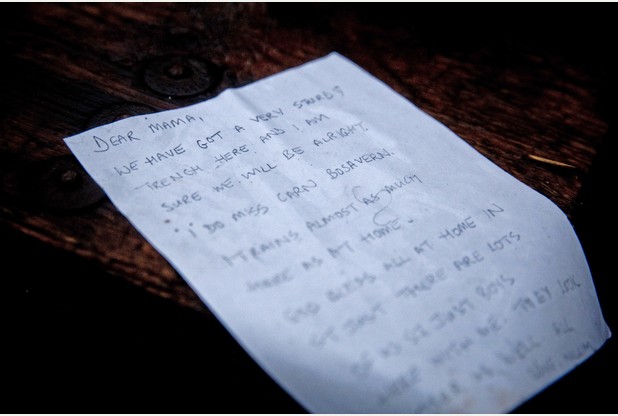 DEAR MAMA,
WE HAVE GOT A VERY
TRENCH HERE AND I AM
SURE WE WILL BE ALRIGHT
I DO MISS CARN BOSAVERN.
IT RAINS ALMOST AS MUCH
HERE AS AT HOME.
GOD BLESS ALL AT HOME IN
ST JUST THERE ARE LOTS
OF ST JUST BOYS
HERE WITH ME. THEY
WELL